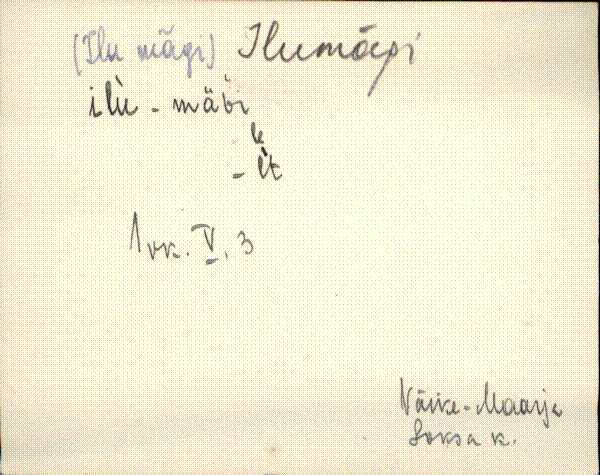 (Ilu mägi) Ilumägi
ilù - mäGi
le
- lt
1 vk. V. 3
Väike-Maarja
Soksa k.